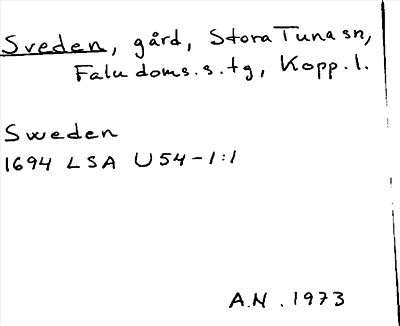 Sveden, gård, Stora Tuna sn,
Falu doms.s.tg, Kopp.l.
Sweden
1694 LSA U54-1:1
A.N. 1973